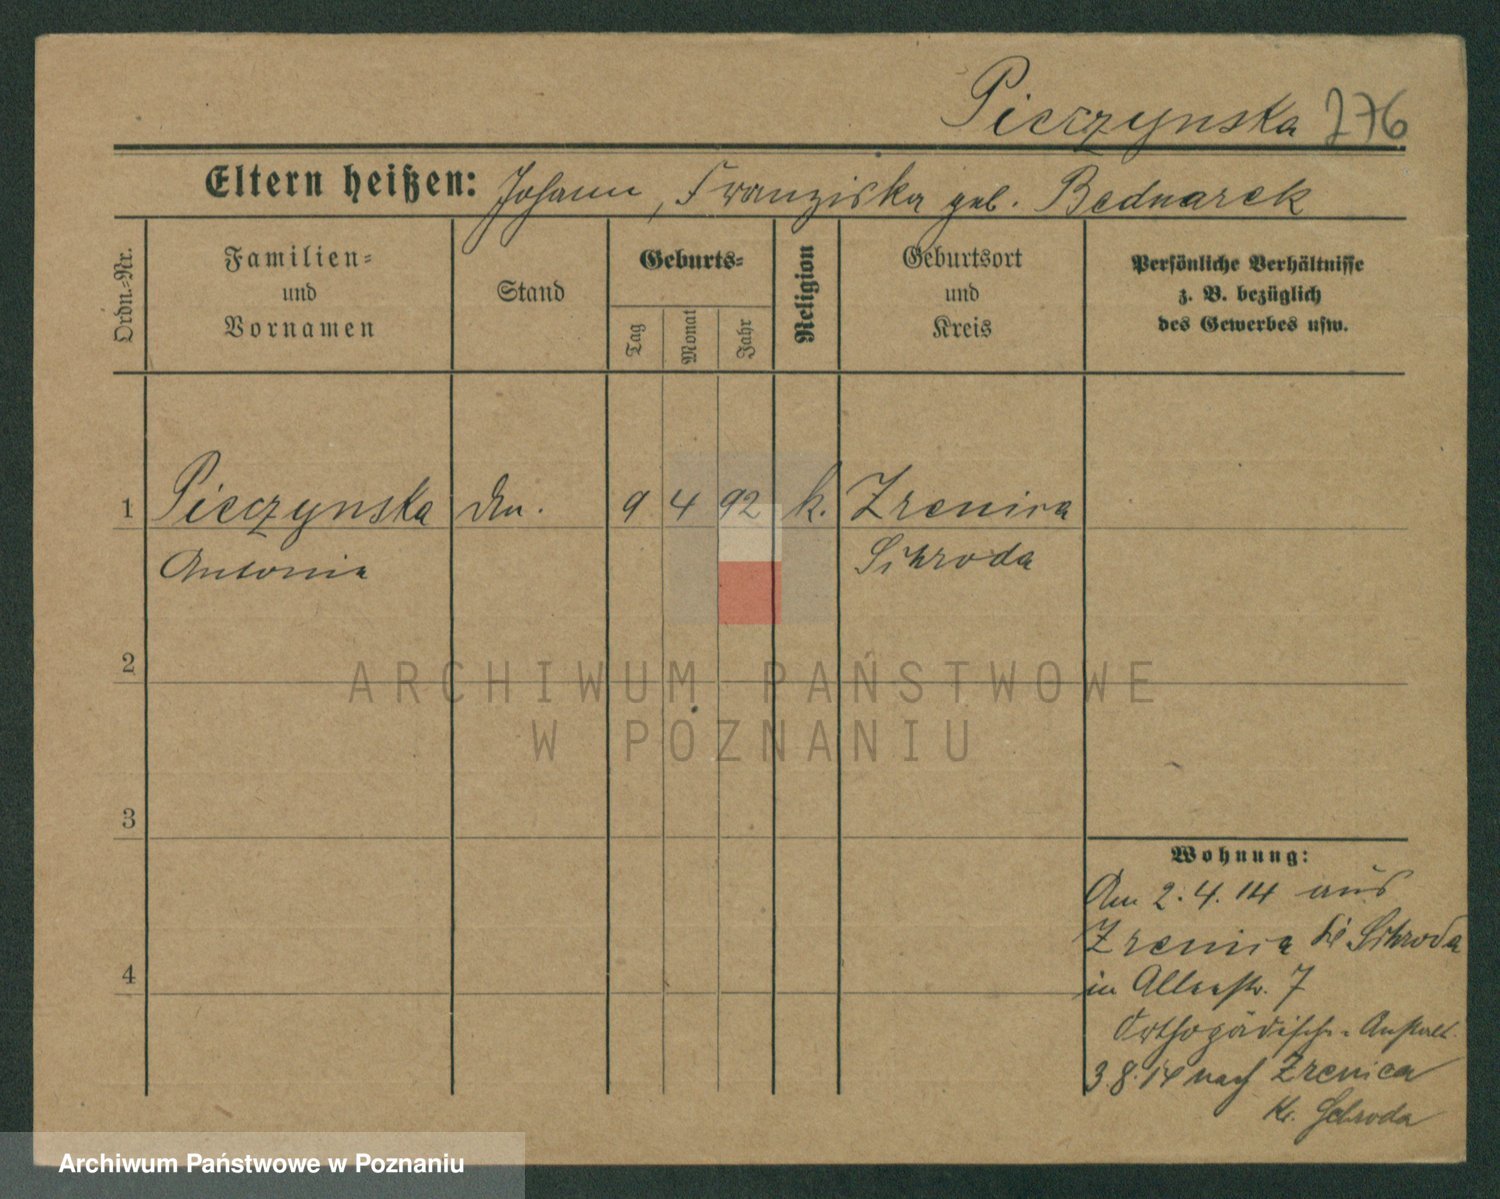 Pieczynska 276
Eltern heißen: Johann, Franziska geb. Bednarek
Ordn.-Nr.
Familien-
und
Vornamen
Stand
Geburts-
Tag
Monat
Jahr
Religion
Geburtsort
und
Kreis
Persönliche Verhältnisse
z. B. bezüglich
des Gewerbes usw.
1 Pieczynska 9 4 92 k. Zrenica
Antonia Schroda
2
3
4
Wohnung:
Am 2.4.14 aus
Zrenica Schroda
in Allerstr. 7
Orthopädische-Anstalt
3.8.14 nach Zrenica
Kr. Schroda
ARCHIWUM PAŃSTWOWE
W POZNANIU
Archiwum Państwowe w Poznaniu